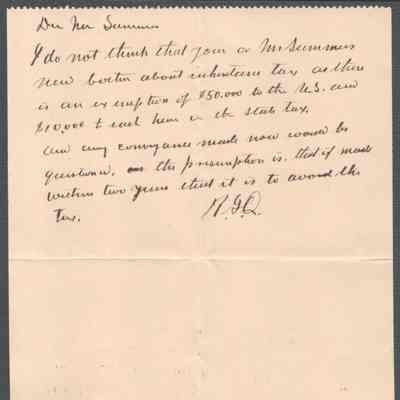 Dr Mr Summers
I do not think that you or Mr Summers
need bother about inheritance tax as there
is an exemption of $50.000 to the U.S. and
$10,000 to each heir in the state tax.
and any conveyance made now would be
questioned. as the presumption is. that if made
within two years that it is to avoid the
tax.